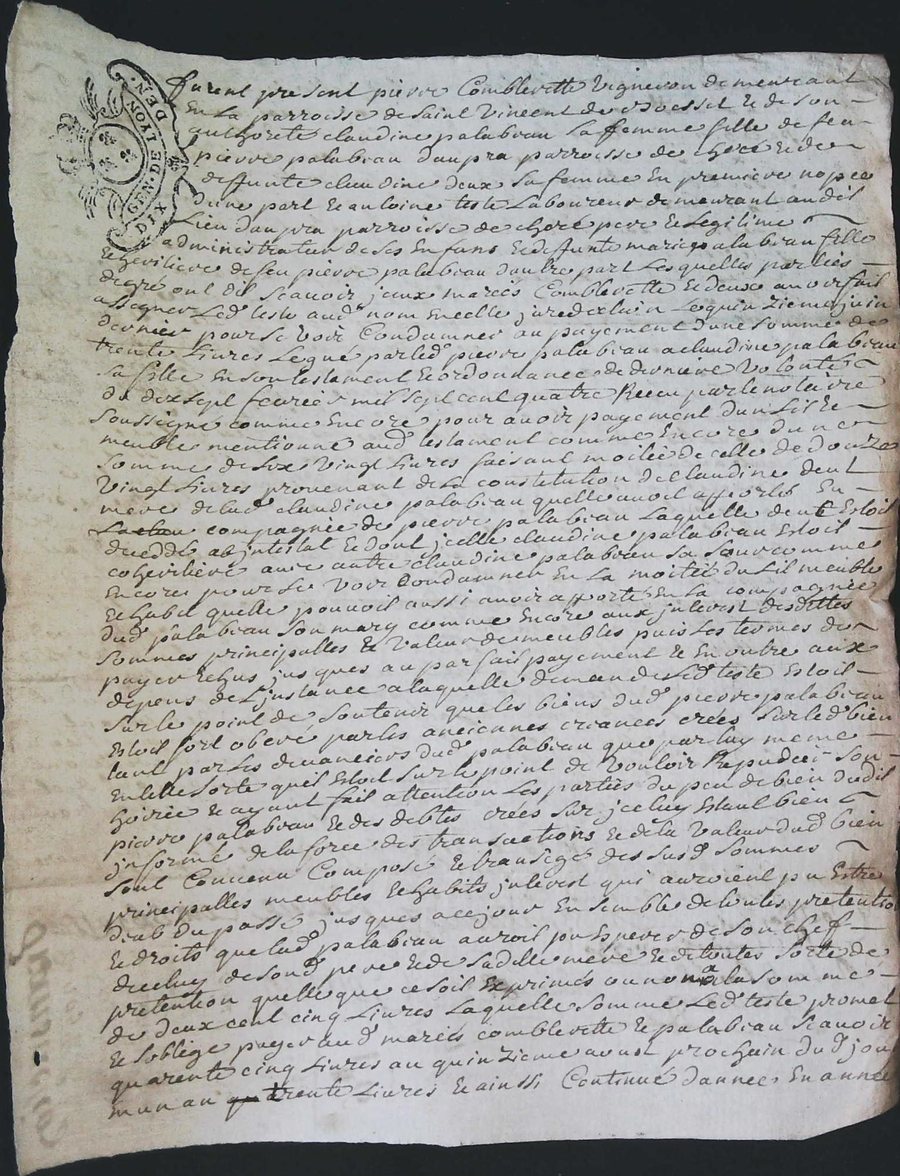 GEN. DE LYON. DIX DEN.
furent present pierre Comblevette Vigneron demeurant
En La parroisse de saint Vincent de & de son
authorité claudine palabeau La femme fille de feu
pierre palabeau dupra parroisse de & de
deffunte claudine deux sa femme En premiere nopce
d'une part & antoine teste Laboureur demeurant audit
Lieu dupra parroisse de pere & Legitime
administrateur de ses Enfans & deffunte marie palabeau fille
& heritiere de feu pierre palabeau dautre part Lesquelles parties
degre ont dit scauoir jceux mariés Comblevette & deux auoir fait
assigner Led teste aud nom En celle Le quinzieme juin
dernier pour se voir Condamner au payement dune somme de
trente Liures Legué par led pierre palabeau a claudine palabeau
sa fille En son testament & ordonnance de derniere Volonté
du dix sept feurier mil sept cent quatre Receu par le notaire
soussigné comme Encore pour auoir payement dun Lit &
meuble mentionné aud testament comme Encore dune
somme de six Vingt Liures faisant moitié de celle de douze
Vingt Liures provenant de La constitution de claudine dent
mere de lad claudine palabeau quelle auoit apportés En
La compagnée de pierre palabeau Laquelle dent Estoit
decedé abjntestat & dont jcelle claudine palabeau Estoit
coheritiere auec autre claudine palabeau sa soeur comme
Encores pour se voir Condamner En La moitié du Lit meuble
& habit quelle pouuoit aussi auoir apporté En La compagnée
dud palabeau son mary comme Encore aux jnterest desdittes
sommes principalles & Valeur de meubles puis Les termes de
payer Echus jusques au parfait payement & En outre aux
depens de L'jnstance a laquelle demande Led teste Estoit
sur le point de soutenir que les biens dud pierre palabeau
Estoit fort oberé par les anciennes creances créés sur led bien
tant par Les deuanciers dud palabeau que par luy meme
En telle sorte quil Estoit sur le point de Vouloir Repudier son
hoirie & ayant fait attention Les parties du peu de bien dudit
pierre palabeau & des debtes créés sur jceluy Estant bien
jnformé de la force des transactions & de la Valeur dud bien
sont Conuenu Composé & transigé des susd sommes
principalles meubles & habits jnterest qui auroient pu Estre
deub du passé jusques a cejour Ensemble de toutes pretention
& droits que lad palabeau auroit pu Esperer de son chef
de celuy de sond pere & de saditte mere & de toutes sorte de
pretention quelle que ce soit Exprimés ou non a la somme
de deux cent cinq Liures Laquelle somme Led teste promet
& soblige payer aud mariés comblevette & palabeau scauoir
quarente cinq Liures au quinzieme aoust prochain dud jour
En un an trente Liures & ainssi Continué dannée En année